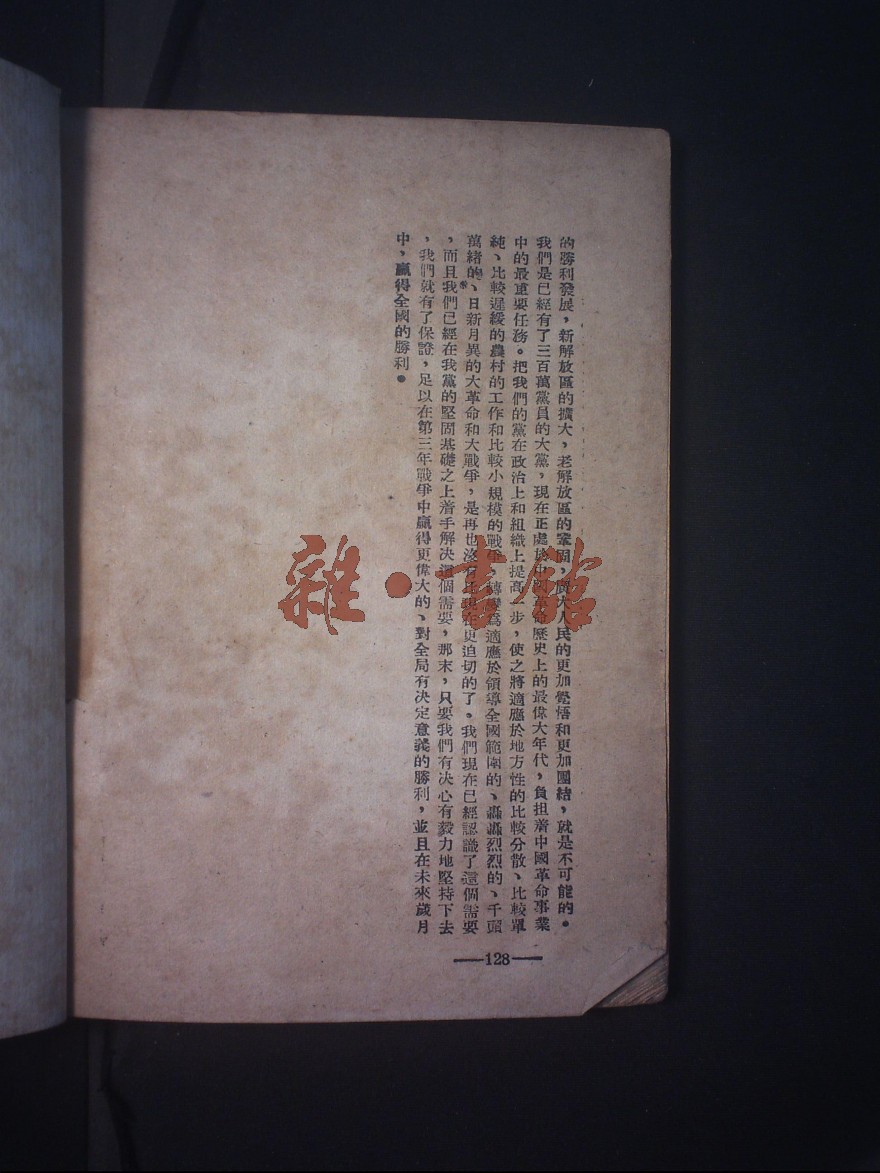 的勝利發展，新解放區的擴大，老解放區的鞏固，廣大人民的更加覺悟和更加團結，就是不可能的。
我們是已經有了三百萬黨員的大黨，現在正處於中國革命歷史上的最偉大年代，負担着中國革命事業
中的最重要任務。把我們的黨在政治上和組織上提高一步，使之將適應於地方性的比較分散、比較單
純、比較遲緩的農村的工作和比較小規模的戰爭，轉變爲適應於領導全國範圍的、轟轟烈烈的、千頭
萬緒的、日新月異的大革命和大戰爭，是再也沒有比現在更迫切的了。我們現在已經認識了這個需要
，而且我們已經在我黨的堅固基礎之上着手解决這個需要，那末，只要我們有决心有毅力地堅持下去
，我們就有了保證，足以在第三年戰爭中贏得更偉大的、對全局有决定意義的勝利，並且在未來歲月
中，贏得全國的勝利。
—128—
雜·書館